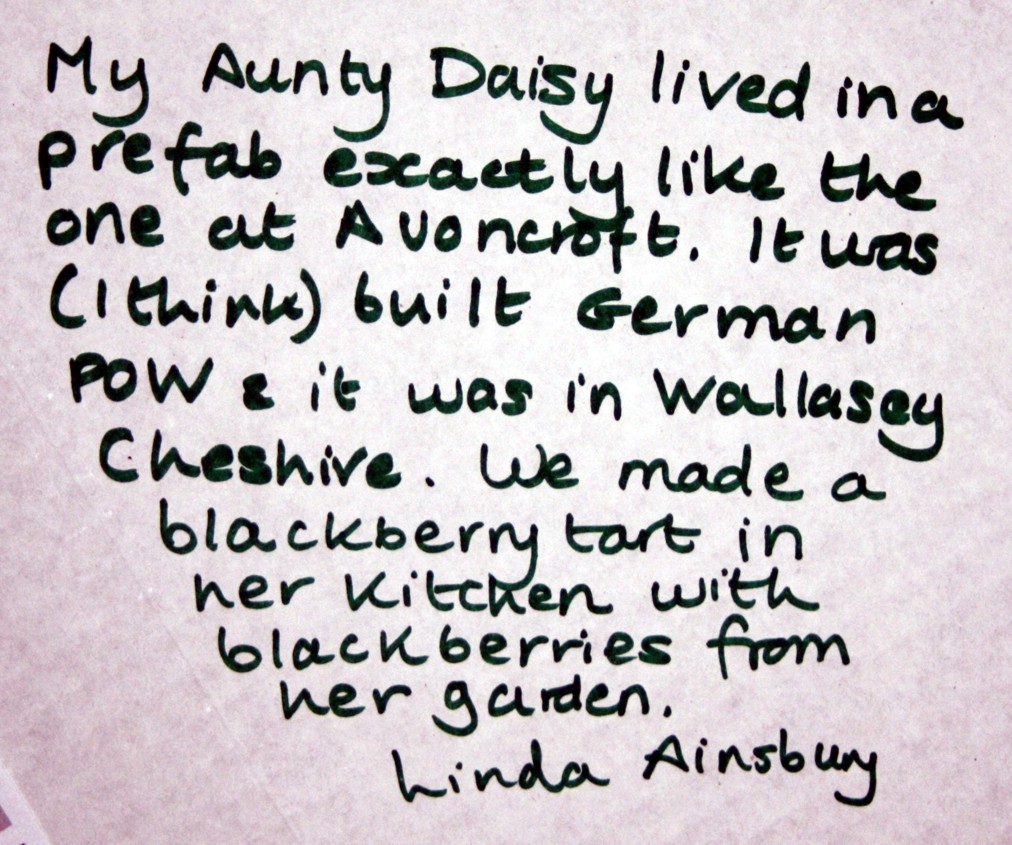 My Aunty Daisy lived in a
prefab exactly like the
one at Avoncroft. It was
(I think) built German
POW & it was in Wallasey
Cheshire. We made a
blackberry tart in
her kitchen with
blackberries from
her garden.
Linda Ainsbury